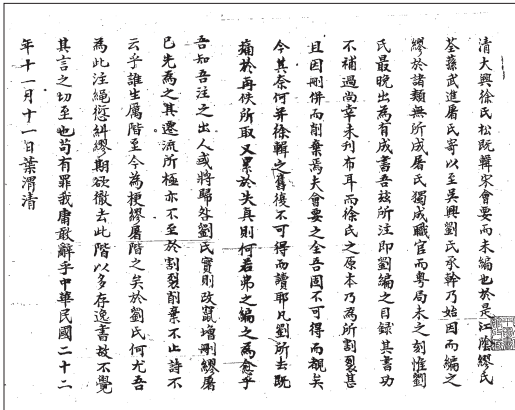 清大興徐氏松既輯宋會要而未編也於是江陰繆氏
荃蓀武進屠氏寄以至吳興劉氏承幹乃始因而編之
繆於諸類無所成屠氏獨成職官而粵局未之刻惟劉
氏最晚出為有成書吾茲所注即劉編之目録其書功
不補過尚幸未刊布耳而徐氏之原本乃為所割裂甚
且因刪併而削棄焉夫會要之全吾固不可得而覩矣
今其奈何并徐輯之舊後不可得而讀耶凡劉所去既
痛於再佚所取又累於失真則何若弗之編之為愈乎
吾知吾注之出人或將歸咎劉氏實則改竄增刪繆屠
已先為之其遷流所極亦不至於割裂削棄不止詩不
云乎誰生厲階至今為梗繆屠階之矣於劉氏何尤吾
為此注繩愆糾繆期欲徹去此階以多存逸書故不覺
其言之切至也苟有罪我庸敢辭乎中華民國二十二
年十一月十一日葉渭清